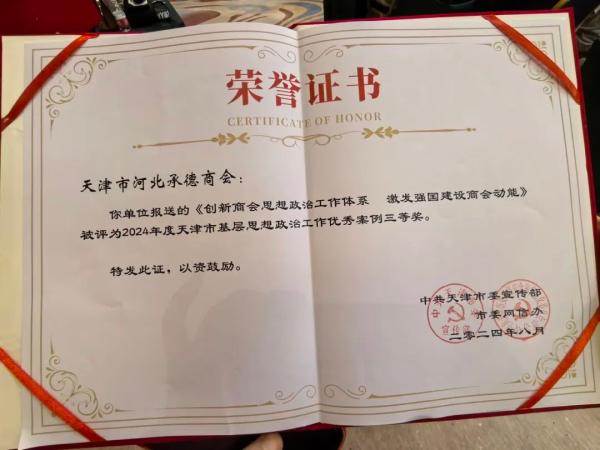 荣誉证书
CERTIFICATE OF HONOR
天津市河北承德商会：
你单位报送的《创新商会思想政治工作体系 激发强国建设商会动能》
被评为2024年度天津市基层思想政治工作优秀案例三等奖。
特发此证，以资鼓励。
中共天津市委宣传部
市委网信办
二零二四年八月